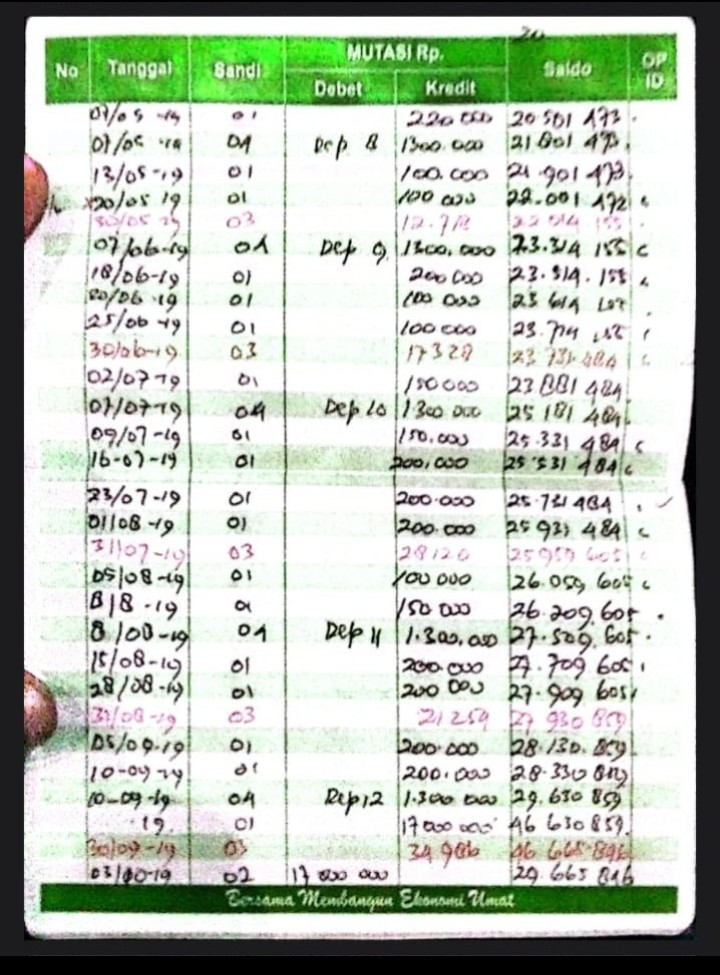 20
MUTASI Rp.
No Tanggal Sandi Debet Kredit Saldo OP ID
07/05-19 01 220 000 20 501 473
07/05-19 04 Dep 8 1300.000 21 801 473
13/05-19 01 100.000 21.901 473
20/05 19 01 100 000 22.001 472
30/05 19 03 12.718 22 014 155
07/06-19 04 Dep 9 1300.000 23.314 155
18/06-19 01 200 000 23.514.155
20/06-19 01 100 000 23 614 155
25/06-19 01 100 000 23.714 155
30/06-19 03 17328 23 731 484
02/07-19 01 150000 23 881 484
07/07-19 04 Dep 10 1300 000 25 181 484
09/07-19 01 150.000 25.331 484
16-07-19 01 200.000 25 531 484
23/07-19 01 200.000 25.731 484
01/08-19 01 200.000 25 931 484
31/07-19 03 28120 25959 605
05/08-19 01 100 000 26.059 605
8/8-19 01 150 000 26.209.605
8/08-19 04 Dep 11 1.300.000 27.509.605
15/08-19 01 200.000 27.709 605
28/08-19 01 200 000 27.909 605
31/08-19 03 21 254 27 930 859
05/09-19 01 200.000 28.130.859
10-09-19 01 200.000 28.330 859
10-09-19 04 Dep 12 1.300 000 29.630 859
19 01 17 000 000 46 630 859
30/09-19 03 34 986 46 665 846
03/10-19 02 17 000 000 29 665 846
Bersama Membangun Ekonomi Umat